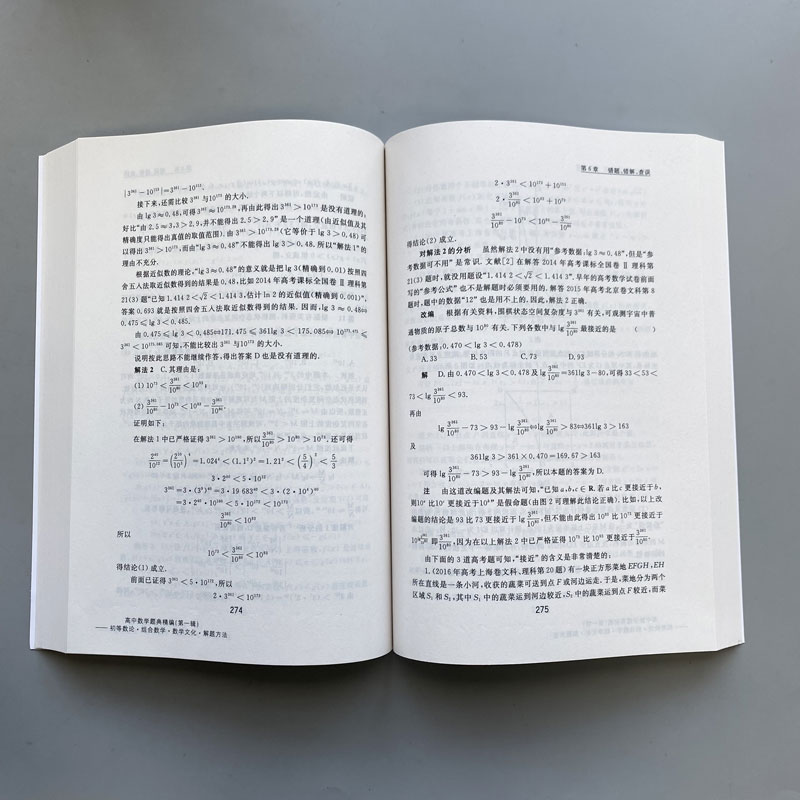 |3³⁶¹−10¹⁷³|=3³⁶¹−10¹⁷³.
接下来,还需比较 3³⁶¹ 与 10¹⁷³ 的大小.
由 lg 3≈0.48,可得 3³⁶¹≈10¹⁷³·²⁸,再由此得出 3³⁶¹>10¹⁷³ 是没有道理的:
好比“由 2.5≈3,3>2.9,并不能得出 2.5>2.9”是一个道理(由近似值及其
精确度只能得出真值的取值范围).由 3³⁶¹>10¹⁷³·²⁸(它等价于 lg 3>0.48)可
以得出 3³⁶¹>10¹⁷³,而由“lg 3≈0.48”不能得出 lg 3>0.48,所以“解法 1”的
理由不充分.
根据近似数的理论,“lg 3≈0.48”的意义就是把 lg 3(精确到 0.01)按照四
舍五入法取近似数得到的结果是 0.48,比如 2014 年高考课标全国卷 Ⅱ 理科第
21(3)题“已知 1.414 2<√2<1.414 3,估计 ln 2 的近似值(精确到 0.001)”,
答案 0.693 就是按照四舍五入法取近似数得到的结果. 因而,lg 3≈0.48⇔
0.475≤lg 3<0.485.
由 0.475≤lg 3<0.485⇔171.475≤361lg 3<175.085⇔10¹⁷¹·⁴⁷⁵≤
3³⁶¹<10¹⁷⁵·⁰⁸⁵ 可知,不能比较出 3³⁶¹ 与 10¹⁷³ 的大小.
说明按此思路不能继续作答,得出答案 D 也是没有道理的.
解法 2 C. 其理由是:
(1) 10⁷³<3³⁶¹/10⁸⁰<10⁹³;
(2) 3³⁶¹/10⁸⁰−10⁷³<10⁹³−3³⁶¹/10⁸⁰.
证明如下:
在解法 1 中已严格证得 3³⁶¹>10¹⁶⁰,所以 3³⁶¹/10⁸⁰>10⁸⁰>10⁷³,还可得
2⁴⁰/10¹²=(2¹⁰/10³)⁴=1.024⁴<(1.1²)²=1.21²<(5/4)²<5/3
3·2⁴⁰<5·10¹²
3³⁶¹=3·(3⁹)⁴⁰=3·19 683⁴⁰<3·(2·10⁴)⁴⁰
=3·2⁴⁰·10¹⁶⁰<5·10¹⁷²<10¹⁷³
3³⁶¹/10⁸⁰<10⁹³
所以
10⁷³<3³⁶¹/10⁸⁰<10⁹³
得结论(1)成立.
前面已证得 3³⁶¹<5·10¹⁷²,所以
2·3³⁶¹<10¹⁷³
274
高中数学题典精编(第一辑)
——初等数论·组合数学·数学文化·解题方法
第 5 章 错题、错解、查误
2·3³⁶¹<10¹⁷³+10¹⁵³
2·3³⁶¹/10⁸⁰<10⁹³+10⁷³
3³⁶¹/10⁸⁰−10⁷³<10⁹³−3³⁶¹/10⁸⁰
得结论(2)成立.
对解法 2 的分析 虽然解法 2 中没有用“参考数据:lg 3≈0.48”,但是“参
考数据可不用”是常识. 文献[2]在解答 2014 年高考课标全国卷 Ⅱ 理科第
21(3)题时,就没用题设“1.414 2<√2<1.414 3”.早年的高考数学试卷前面
写的“参考公式”也不是解题时必须要用的. 解答 2015 年高考北京卷文科第 8
题时,题中的数据“12”也是用不上的.因此,解法 2 正确.
改编 根据有关资料,围棋状态空间复杂度与 3³⁶¹ 有关,可观测宇宙中普
通物质的原子总数与 10⁸⁰ 有关. 下列各数中与 lg 3³⁶¹/10⁸⁰ 最接近的是 ( )
(参考数据:0.470<lg 3<0.478)
A. 33 B. 53 C. 73 D. 93
解 D. 由 0.470<lg 3<0.478 及 lg 3³⁶¹/10⁸⁰=361lg 3−80,可得 33<53<
73<lg 3³⁶¹/10⁸⁰<93.
再由
lg 3³⁶¹/10⁸⁰−73>93−lg 3³⁶¹/10⁸⁰⇔lg 3³⁶¹/10⁸⁰>83⇔361lg 3>163
及
361lg 3>361×0.470=169.67>163
可得 lg 3³⁶¹/10⁸⁰−73>93−lg 3³⁶¹/10⁸⁰,所以本题的答案为 D.
注 由这道改编题及其解法可知,“已知 a,b,c∈R.若 a 比 c 更接近于 b,
则 10ᵃ 比 10ᶜ 更接近于 10ᵇ”是假命题(由图 2 可理解此结论正确). 比如,以上改
编题的结论是 93 比 73 更接近于 lg 3³⁶¹/10⁸⁰,但不能由此得出 10⁹³ 比 10⁷³ 更接近于
即 3³⁶¹/10⁸⁰,因为在以上解法 2 中已严格证得 10⁷³ 比 10⁹³ 更接近于 3³⁶¹/10⁸⁰.
由下面的 3 道高考题可知,“接近”的含义是非常清楚的:
1.(2016 年高考上海卷文科、理科第 20 题)有一块正方形菜地 EFGH,EH
所在直线是一条小河,收获的蔬菜可送到点 F 或河边运走.于是,菜地分为两个
区域 S₁ 和 S₂,其中 S₁ 中的蔬菜运到河边较近,S₂ 中的蔬菜运到点 F 较近,而菜
275